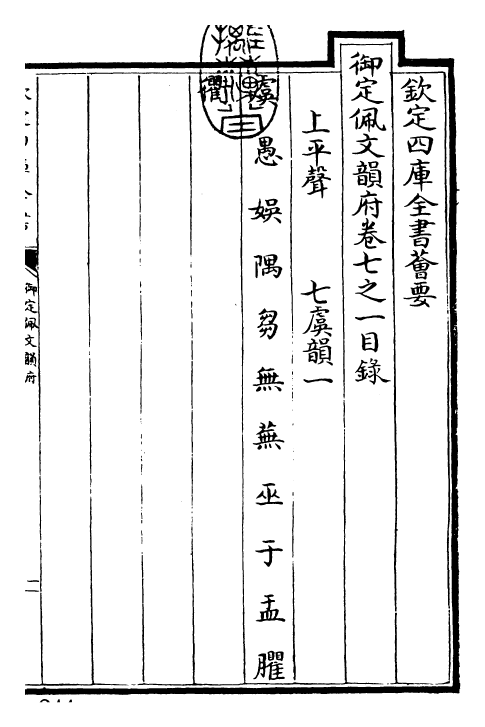 欽定四庫全書薈要
御定佩文韻府卷七之一目錄
上平聲 七虞韻一
虞 愚 娛 隅 芻 無 蕪 巫 于 盂 臞
衢
御定佩文韻府